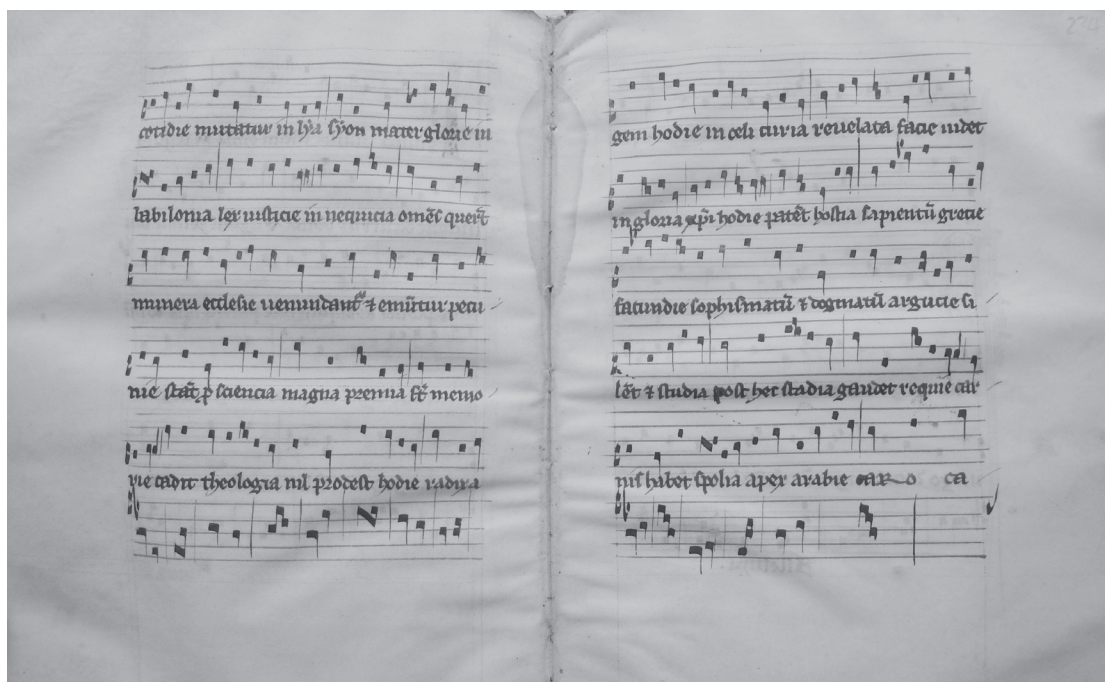 cotidie mutatur in lẏra sẏon mater glorie in
babilonia lex iusticie in nequicia om̄s querūt
munera ecclesie uenundant᷑ ⁊ emūtur pecu
nie stat̄ ꝑ sciencia magna premia memo
rie cadit theologia nil prodest hodie
gem hodie in celi curia reuelata facie uidet
in gloria xp̄i hodie patēt hostia sapientū grecie
facundie sophismatū ⁊ dogmatū argucie si
lēt ⁊ studia post hec stadia gaudet requie car
nis habet spolia apex arabie ca